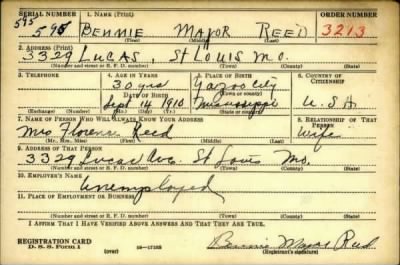 SERIAL NUMBER 1. NAME (Print) ORDER NUMBER
595
595 BENMIE MAJOR REED 3213
(First) (Middle) (Last)
2. ADDRESS (Print)
3329 LUCAS, ST LOUIS MO.
(Number and street or R. F. D. number) (Town) (County) (State)
3. TELEPHONE 4. AGE IN YEARS 5. PLACE OF BIRTH 6. COUNTRY OF CITIZENSHIP
30 yrs Yazoo City
DATE OF BIRTH (Town or county)
Sept 14 1910 Mississippi U.S.A.
(Exchange) (Number) (Mo.) (Day) (Yr.) (State or country)
7. NAME OF PERSON WHO WILL ALWAYS KNOW YOUR ADDRESS 8. RELATIONSHIP OF THAT PERSON
Mrs Florence Reed Wife
(Mr., Mrs., Miss) (First) (Middle) (Last)
9. ADDRESS OF THAT PERSON
3329 Lucas Ave. St Louis Mo.
(Number and street or R. F. D. number) (Town) (County) (State)
10. EMPLOYER'S NAME
Unemployed
11. PLACE OF EMPLOYMENT OR BUSINESS
(Number and street or R. F. D. number) (Town) (County) (State)
I AFFIRM THAT I HAVE VERIFIED ABOVE ANSWERS AND THAT THEY ARE TRUE.
REGISTRATION CARD
D. S. S. Form 1 (over) 16—17105 Bennie Major Reed
(Registrant's signature)